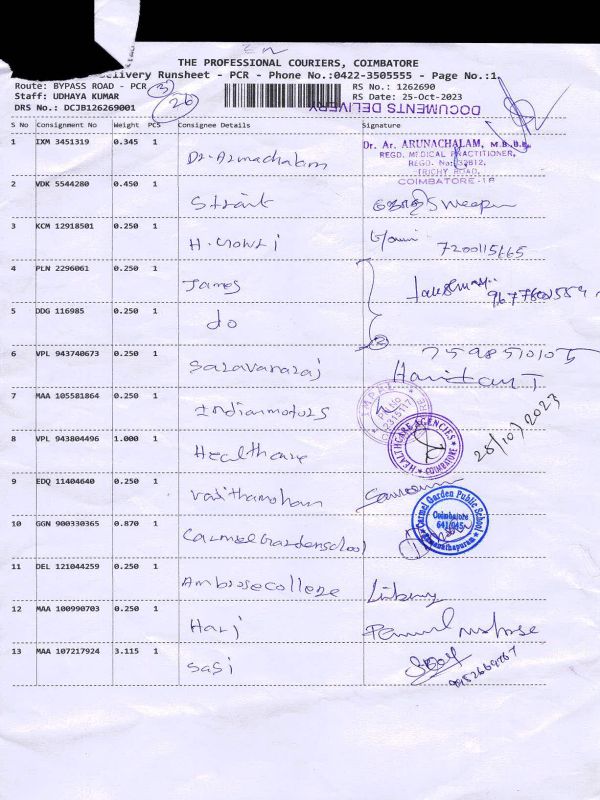 THE PROFESSIONAL COURIERS, COIMBATORE
Delivery Runsheet - PCR - Phone No.:0422-3505555 - Page No.:1
Route: BYPASS ROAD - PCR
RS No.: 1262690
Staff: UDHAYA KUMAR
26
RS Date: 25-Oct-2023
DRS No.: DCJB126269001
DOCUMENTS DELIVERY
S No Consignment No Weight PCS Consignee Details Signature
1 IXM 3451319 0.345 1 Dr. Arunachalam
Dr. Ar. ARUNACHALAM, M.B.B.S.
REGD. MEDICAL PRACTITIONER,
REGD. No: 32812,
TRICHY ROAD,
COIMBATORE-18
2 VDK 5544280 0.450 1
3 KCM 12918501 0.250 1 H. Gowri
7200115665
4 PLN 2296061 0.250 1 James
5 DDG 116985 0.250 1 do
2
6 VPL 943740673 0.250 1 Saravanaraj
7598570105
7 MAA 105581864 0.250 1 Indian motors
8 VPL 943804496 1.000 1 Healthcare
HEALTHCARE AGENCIES
COIMBATORE
25/10/2023
9 EDQ 11404640 0.250 1
10 GGN 900330365 0.870 1 Carmel Garden School
Carmel Garden Public School
Coimbatore
641 045
Ramanathapuram
11 DEL 121044259 0.250 1 Ambrose college
12 MAA 100990703 0.250 1 Hari
13 MAA 107217924 3.115 1 Sasi